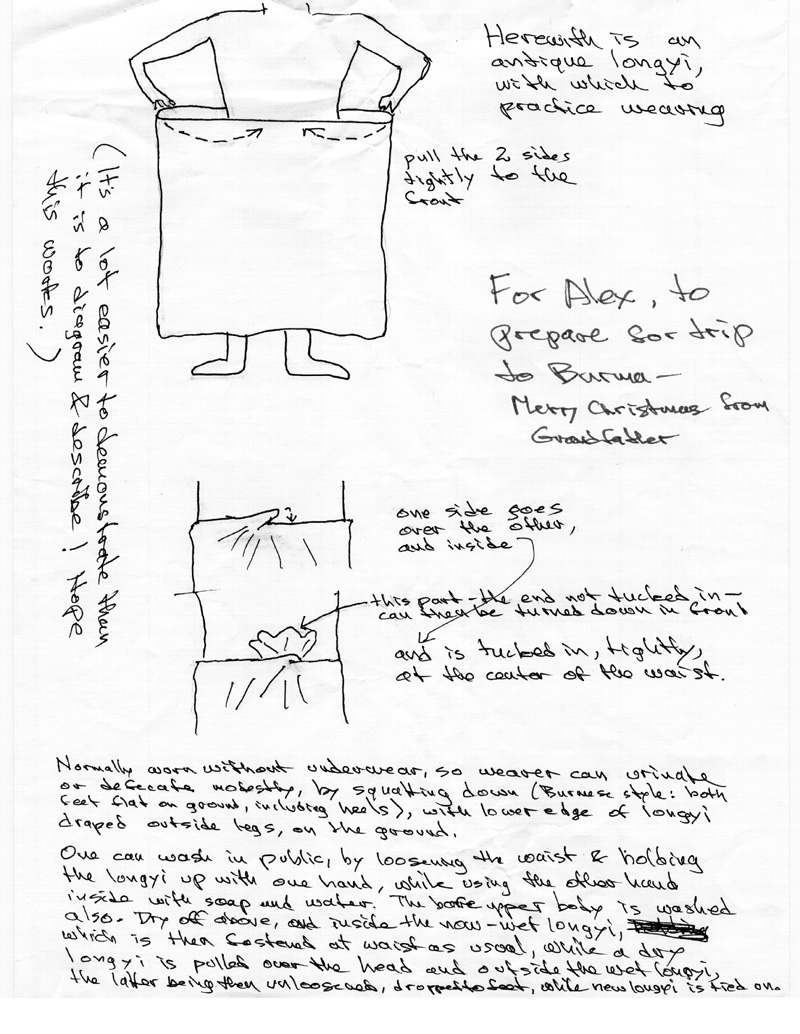 Herewith is an
antique longyi,
with which to
practice wearing
pull the 2 sides
tightly to the
front
(It's a lot easier to demonstrate than
it is to diagram & describe! Hope
this works.)
For Alex, to
prepare for trip
to Burma—
Merry Christmas from
Grandfather
one side goes
over the other,
and inside
this part - the end not tucked in —
can then be turned down in front
and is tucked in, tightly,
at the center of the waist.
Normally worn without underwear, so wearer can urinate
or defecate modestly, by squatting down (Burmese style: both
feet flat on ground, including heels), with lower edge of longyi
draped outside legs, on the ground.
One can wash in public, by loosening the waist & holding
the longyi up with one hand, while using the other hand
inside with soap and water. The bare upper body is washed
also. Dry off above, and inside the now-wet longyi,
which is then fastened at waist as usual, while a dry
longyi is pulled over the head and outside the wet longyi,
the latter being then unloosened, dropped to feet, while new longyi is tied on.